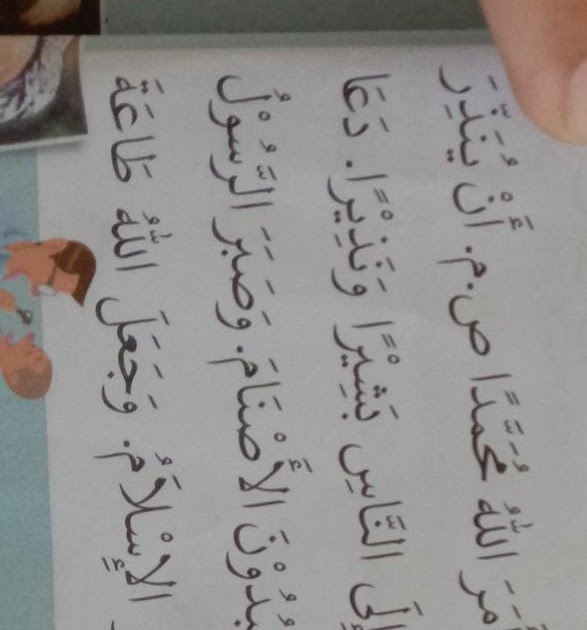 مَرَ اللّٰهُ مُحَمَّدًا ص.م. أَنْ يُنَذِّرَ
إِلَى النَّاسِ بَشِيْرًا وَنَذِيْرًا. دَعَا
بُدُوْنَ الأَصْنَامَ. وَصَبَرَ الرَّسُوْلُ
الإِسْلاَمُ. وَجَعَلَ اللّٰهُ طَاعَةَ